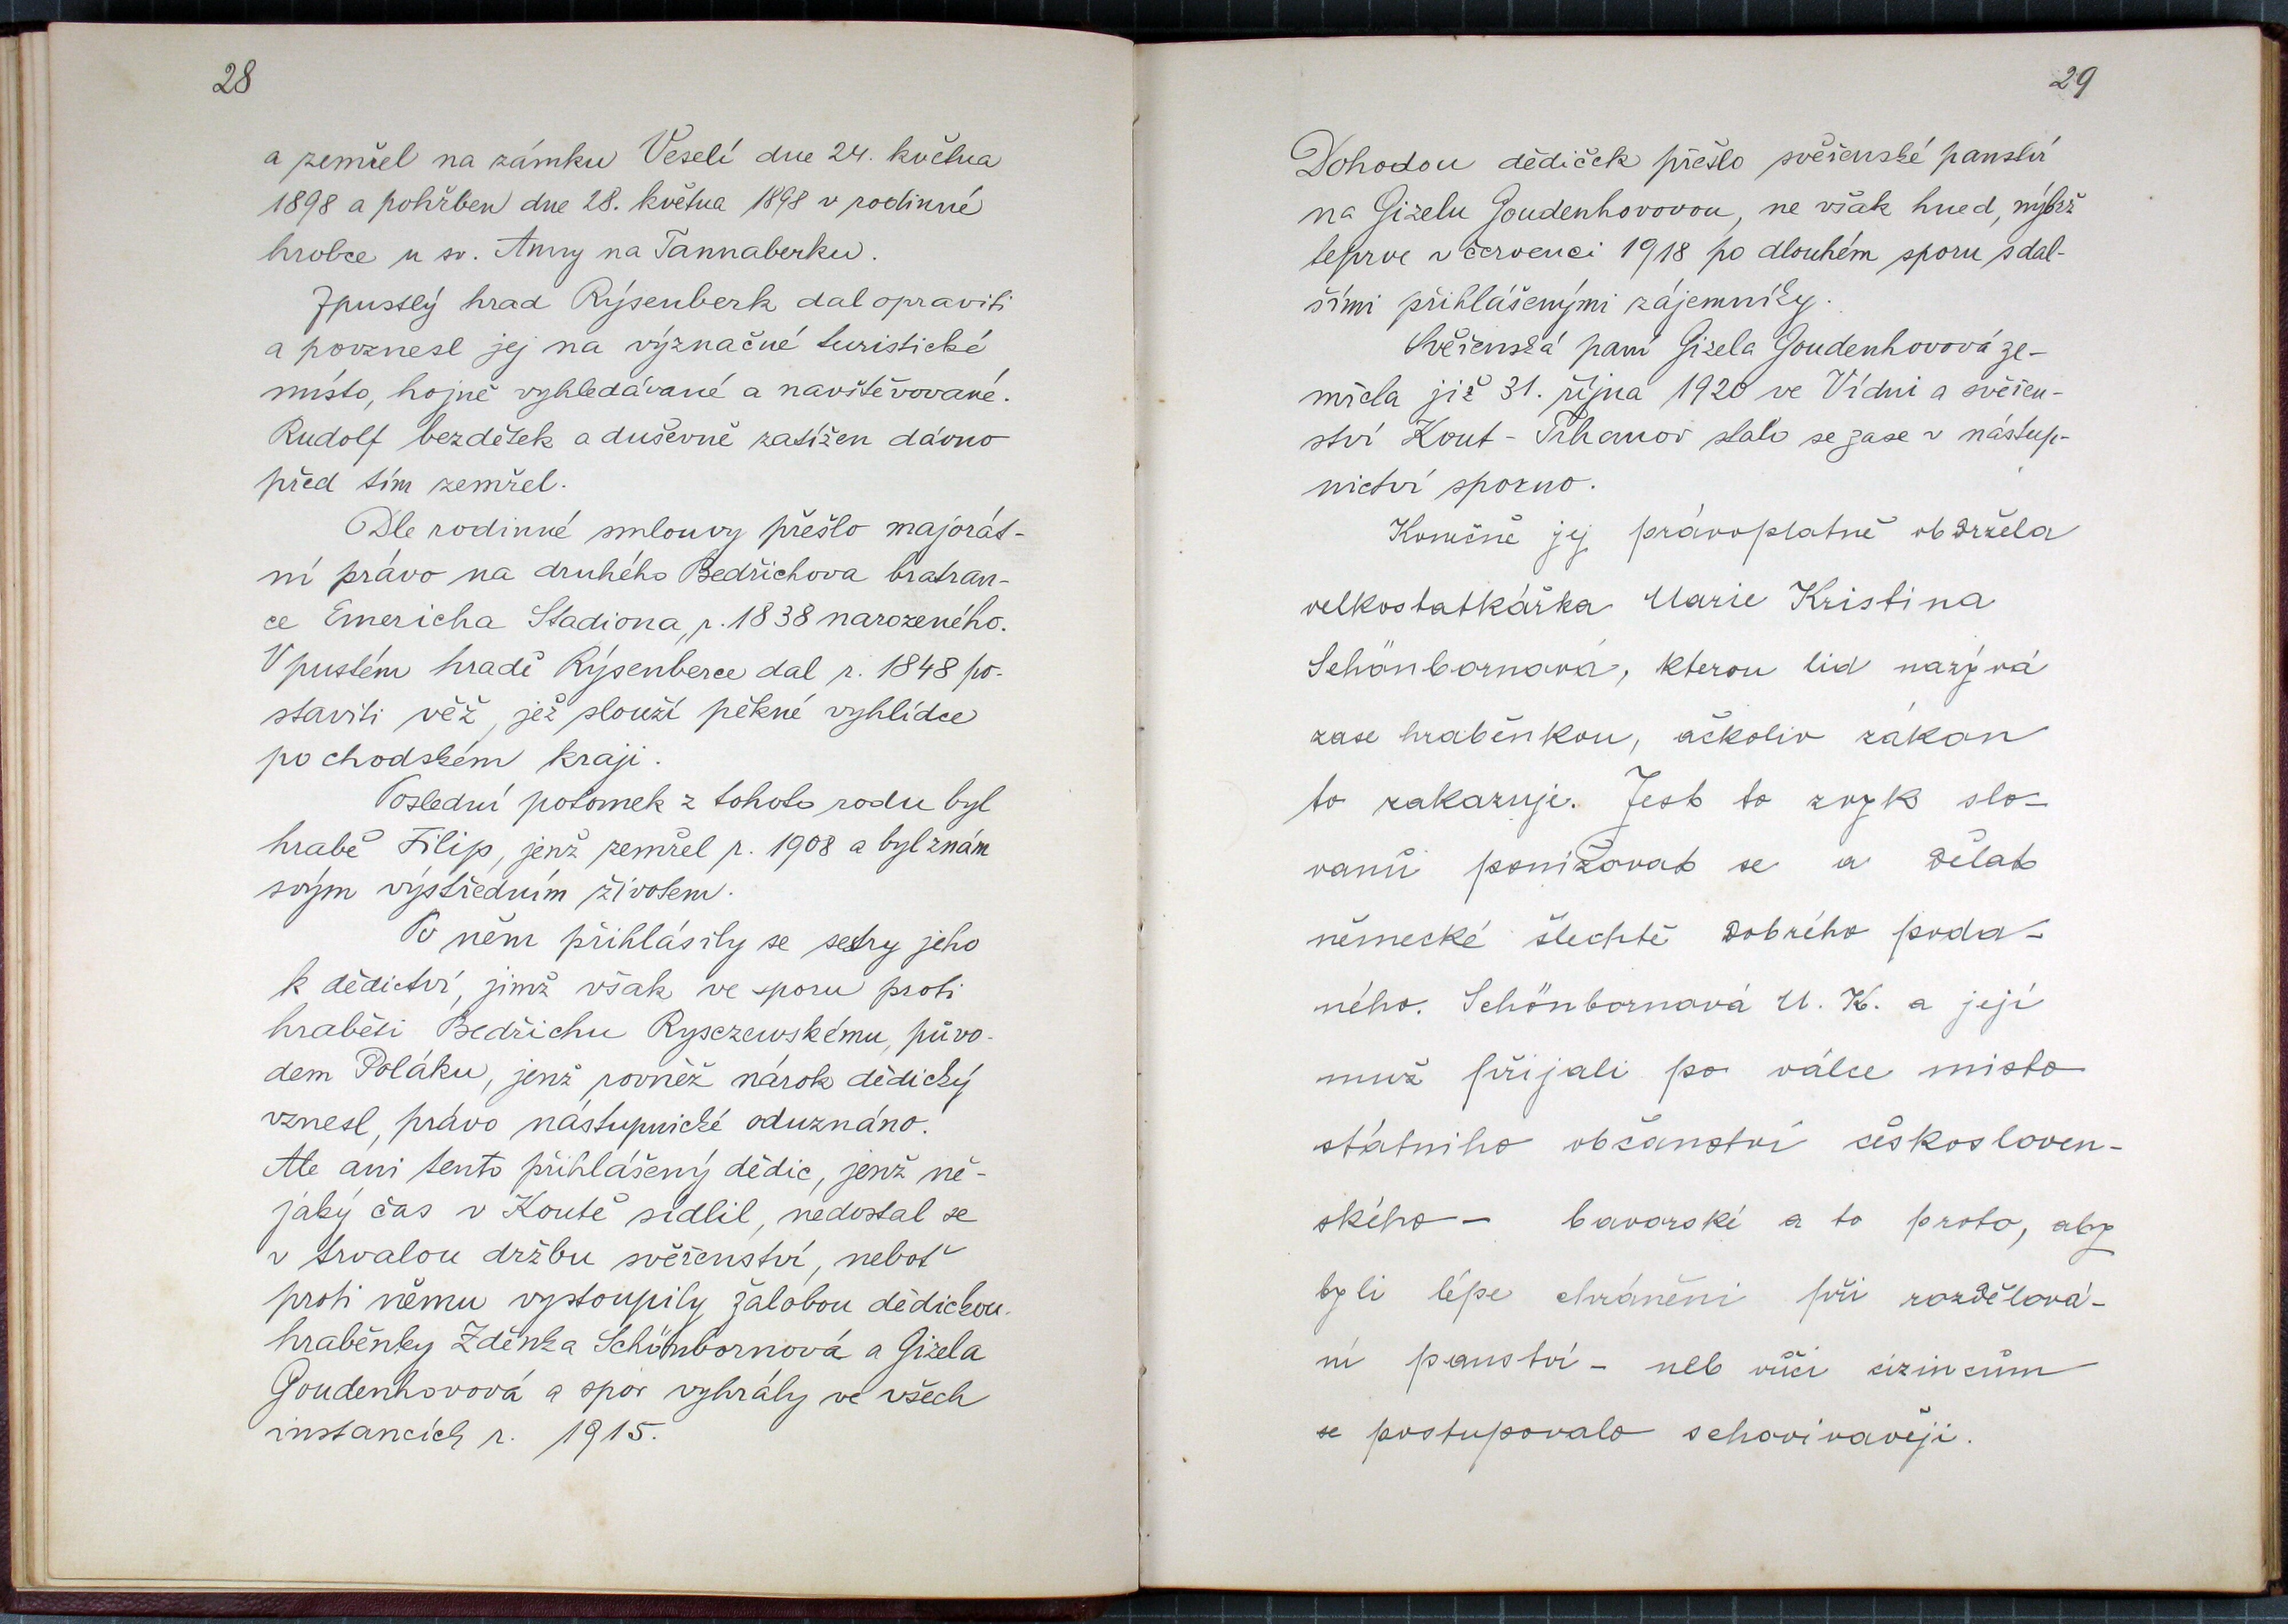 28
a zemřel na zámku Veselí dne 24. května
1898 a pohřben dne 28. května 1898 v rodinné
hrobce u sv. Anny na Tannaberku.
Zpustlý hrad Rýsenberk dal opraviti
a povznesl jej na význačné turistické
místo, hojně vyhledávané a navštěvované.
Rudolf bezdětek a duševně zatížen dávno
před tím zemřel.
Dle rodinné smlouvy přešlo majorát-
ní právo na druhého Bedřichova bratran-
ce Emericha Stadiona, r. 1838 narozeného.
V pustém hradě Rýsenberce dal r. 1848 po-
staviti věž, jež slouží pěkné vyhlídce
po chodském kraji.
Poslední potomek z tohoto rodu byl
hrabě Filip, jenž zemřel r. 1908 a byl znám
svým výstředním životem.
Po něm přihlásily se sestry jeho
k dědictví, jimž však ve sporu proti
hraběti Bedřichu Rysczewskému, půvo-
dem Poláku, jenž rovněž nárok dědický
vznesl, právo nástupnické oduznáno.
Ale ani tento přihlášený dědic, jenž ně-
jaký čas v Koutě sídlil, nedostal se
v trvalou držbu svěřenství, neboť
proti němu vystoupily žalobou dědickou
hraběnky Zděnka Schönbornová a Gizela
Goudenhovová a spor vyhrály ve všech
instancích r. 1915.
29
Dohodou dědiček přešlo svěřenské panství
na Gizelu Goudenhovovou, ne však hned, nýbrž
teprve v červenci 1918 po dlouhém sporu s dal-
šími přihlášenými zájemníky.
Svěřenská paní Gizela Goudenhovová ze-
mřela již 31. října 1920 ve Vídni a svěřen-
ství Kout - Trhanov stalo se zase v nástup-
nictví sporno.
Konečně jej právoplatně obdržela
velkostatkářka Marie Kristina
Schönbornová, kterou lid nazývá
zase hraběnkou, ačkoliv zákon
to zakazuje. Jest to zvyk slo-
vanů ponižovat se a dělat
německé šlechtě dobrého podda-
ného. Schönbornová M. K. a její
muž přijali po válce misto
státniho občanství českosloven-
ského - bavorské a to proto, aby
byli lépe chráněni při rozdělová-
ní panství - neb vůči cizincům
se postupovalo schovívavěji.